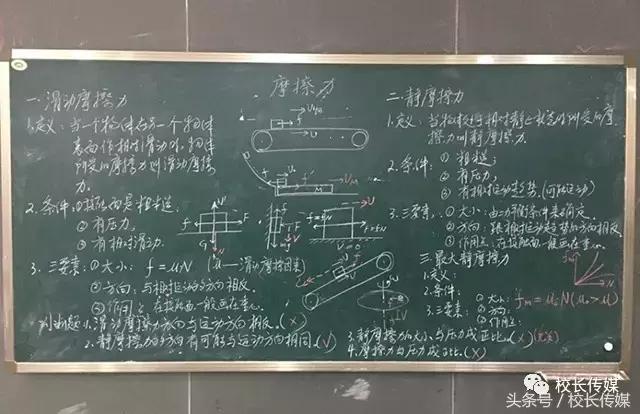 摩擦力
一.滑动摩擦力
1.定义：当一个物体在另一个物体
表面作相对滑动时,物体
所受的摩擦力叫滑动摩擦
力.
2.条件：①接触面是粗糙.
②有压力.
③有相对滑动.
3.三要素：①大小：f=μN (μ—滑动摩擦因素)
②方向：与相对运动方向相反.
③作用点：在接触面一般画在重心.
判断题 1.滑动摩擦力方向与运动方向相反.(×)
2.静摩擦力的方向有可能与运动方向相同.(√)
二.静摩擦力
2.条件：①粗糙；
②有压力；
③有相对运动趋势.(可能运动)
3.三要素：①大小：由二力平衡条件来确定.
②方向：跟相对运动趋势的方向相反.
③作用点：在接触面,一般画在重心.
三.最大静摩擦力
1.定义：
2.条件：
3.三要素：①大小：fm=μ₀N(μ₀>μ)
②方向：
③作用点：
3.静摩擦力的大小与压力成正比.(×)(无关)
4.摩擦力与压力成正比.(×)
校长传媒
头条号／校长传媒